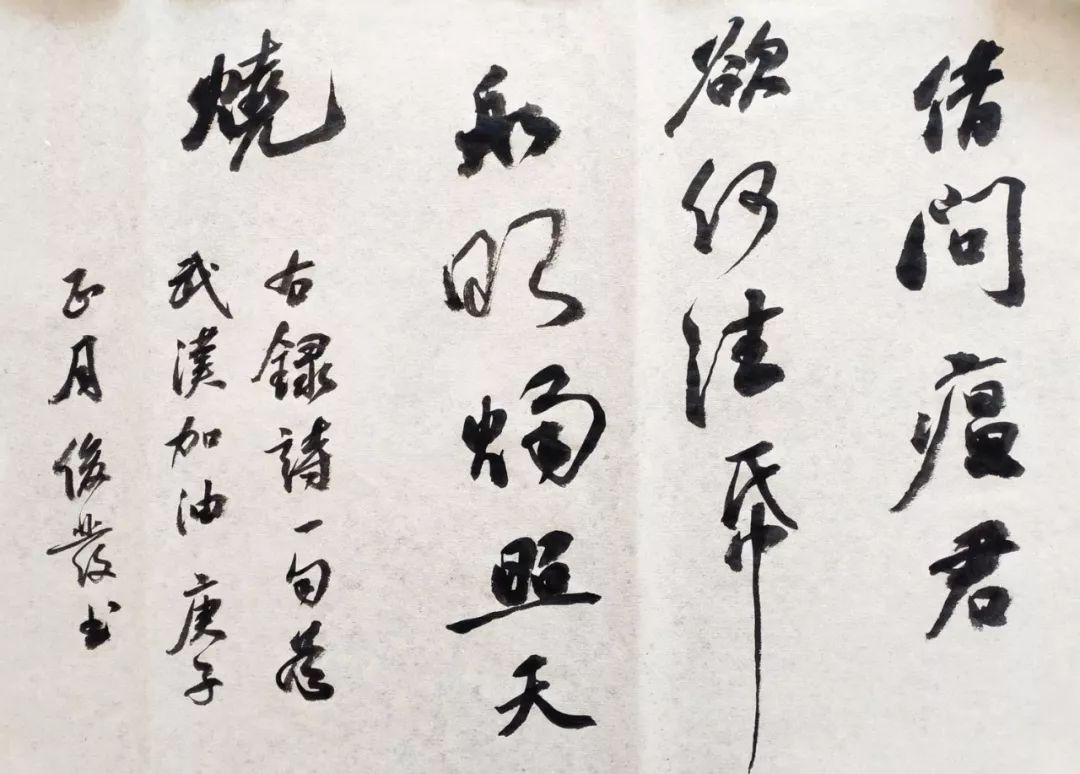 借問瘟君
欲何往帋
船明燭照天
燒
右録詩一句為
武漢加油庚子
正月俊發书